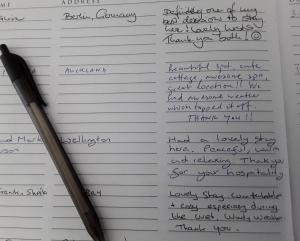 ADDRESS
Berlin, Germany
Definitely one of my
best decisions to stay
here! Lovely hosts!
Thank you both! ☺
AUCKLAND
Beautiful spot, cute
cottage, awesome spa,
great location!! We
had awesome weather
which topped it off.
THANK YOU!!
Mark
Wellington
Had a lovely stay
here. Peaceful, warm
and relaxing Thank you
for your hospitality
Bay
Lovely Stay comfortable
+ cosy especially during
the wet, windy weather.
Thank you.